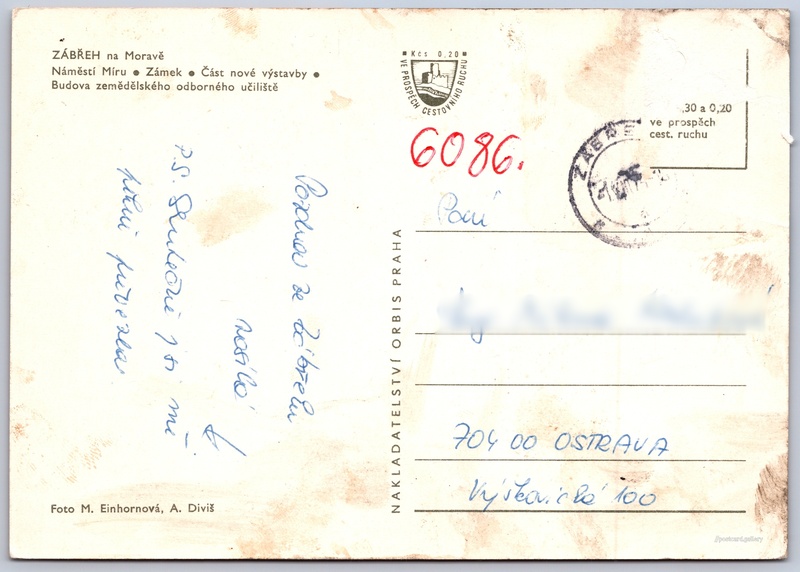 ZÁBŘEH na Moravě
Náměstí Míru ● Zámek ● Část nové výstavby ●
Budova zemědělského odborného učiliště
Kčs 0,20
VE PROSPĚCH CESTOVNÍHO RUCHU
,30 a 0,20
ve prospěch
cest. ruchu
6086.
ZÁBŘE
Paní
704 00 OSTRAVA
Výškovická 100
NAKLADATELSTVÍ ORBIS PRAHA
Pozdrav ze Zábřehu
P.S. Skutečně jsi mě
Foto M. Einhornová, A. Diviš
postcard.gallery